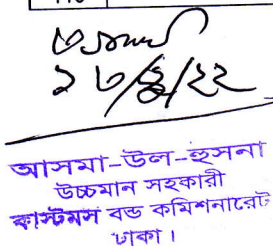 ১৩/৪/২২
আসমা-উল-হুসনা
উচ্চমান সহকারী
কাস্টমস বন্ড কমিশনারেট
ঢাকা।